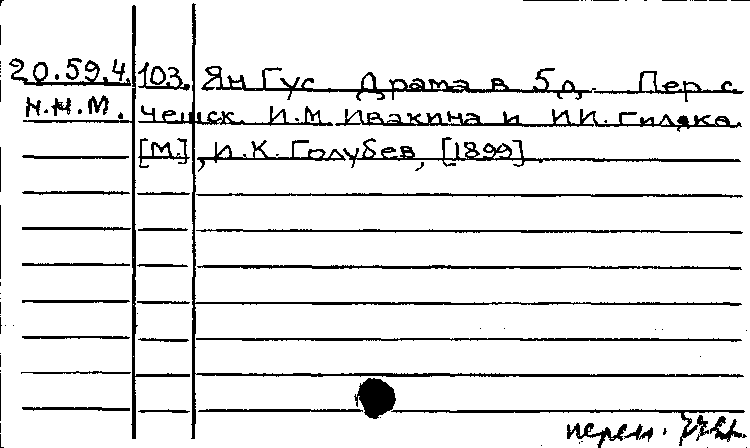 20.59.4. 103. Ян Гус. Драма в 5 д. Пер с
Н.М.М. чешск. И.М. Ивакина и И.И. Гиляка.
[М.], И.К. Голубев, [1899].
перем.